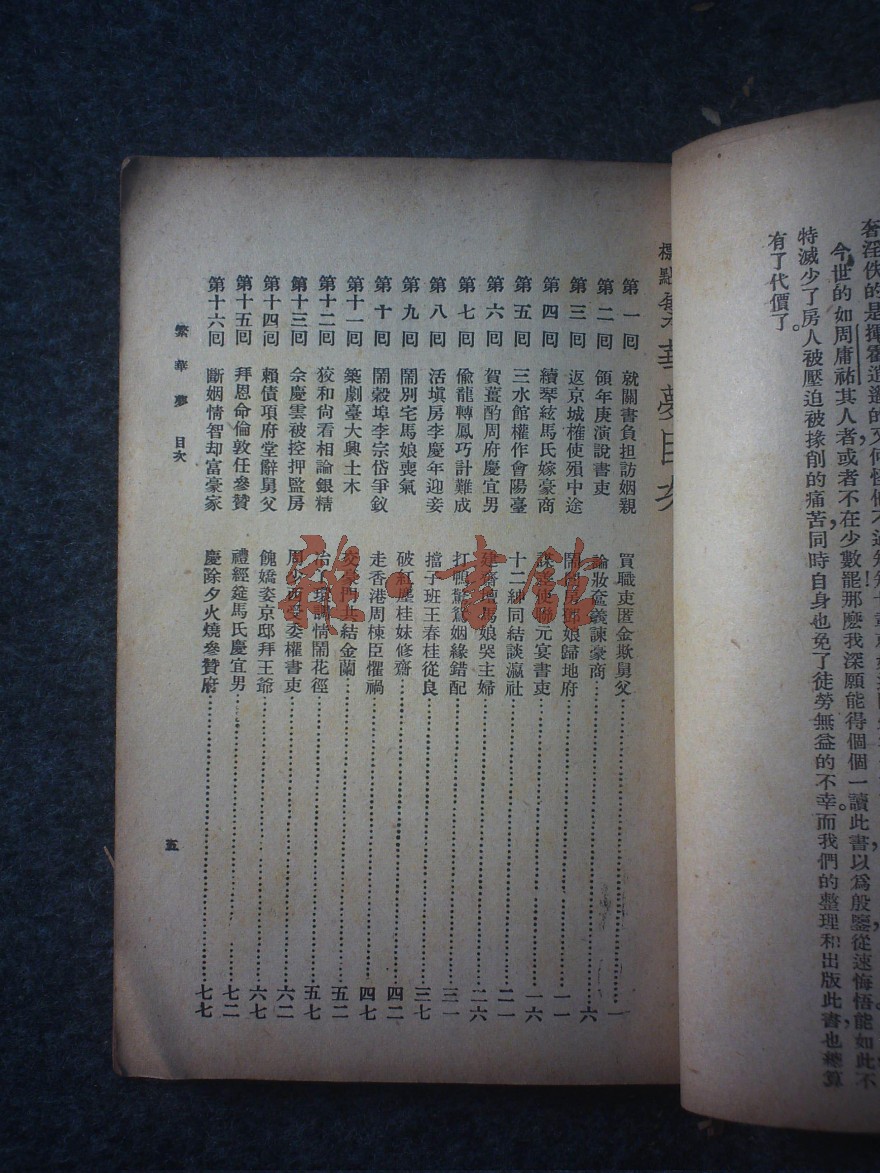 奢淫佚的是揮霍逍遙的又何怪他不
今世的如周庸祐其人者或者不在少數罷那麽我深願能得個個一讀此書以爲殷鑒從速悔悟能如此不
特減少了房人被壓迫被掾削的痛苦同時自身也免了徒勞無益的不幸而我們的整理和出版此書也總算
有了代價了。
標點繁華夢目次
第一回 就關書負担訪姻親 買職吏匿金欺舅父 一
第二回 領年庚演說書吏 論妝奩義諫豪商 六
第三回 返京城榷使殞中途 鬧閨房鄧娘歸地府 一一
第四回 續琴絃馬氏嫁豪商 謀差使聯元宴書吏 一六
第五回 三水館權作會陽臺 十二紳同結談瀛社 二一
第六回 賀薑酌周府慶宜男 建齋壇馬娘哭主婦 二六
第七回 偷龍轉鳳巧計難成 打鴨驚鴛姻緣錯配 三一
第八回 活塡房李慶年迎妾 擋子班王春桂從良 三七
第九回 鬧別宅馬娘喪氣 破紅塵桂妹修齋 四二
第十回 鬧穀埠李宗岱爭釵 走香港周棟臣懼禍 四七
第十一回 築劇臺大興土木 交豪門共結金蘭 五二
第十二回 狡和尙看相論銀精 冶丫環調情鬧花徑 五七
第十三回 余慶雲被控押監房 周少西受委權書吏 六二
第十四回 賴債項府堂辭舅父 餽嬌姿京邸拜王爺 六七
第十五回 拜恩命倫敦任參贊 禮經筵馬氏慶宜男 七二
第十六回 斷姻情智却富豪家 慶除夕火燒參贊府 七七
繁華夢 目次
五
雜書館